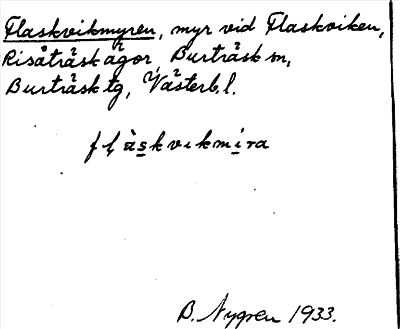 Flaskvikmyren, myr vid Flaskviken,
Risåträsk ägor, Burträsk sn,
Burträsk tg, Västerb. l.
flàskvikmira
B. Nygren 1933.